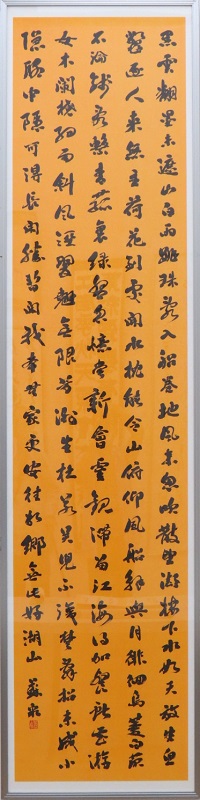 黑雲翻墨未遮山白雨跳珠亂入船卷地風來忽吹散望湖樓下水如天放生魚
鱉逐人來無主荷花到處開水枕能令山俯仰風船解與月徘徊烏菱白芡
不論錢亂繫青菰裹綠盤忽憶嘗新會靈觀滯留江海得加餐獻花游
女木蘭橈細雨斜風濕翠翹無限芳洲生杜若吳兒不識楚辭招未成小
隱聊中隱可得長閒勝暫閒我本無家更安往故鄉無此好湖山 蘇